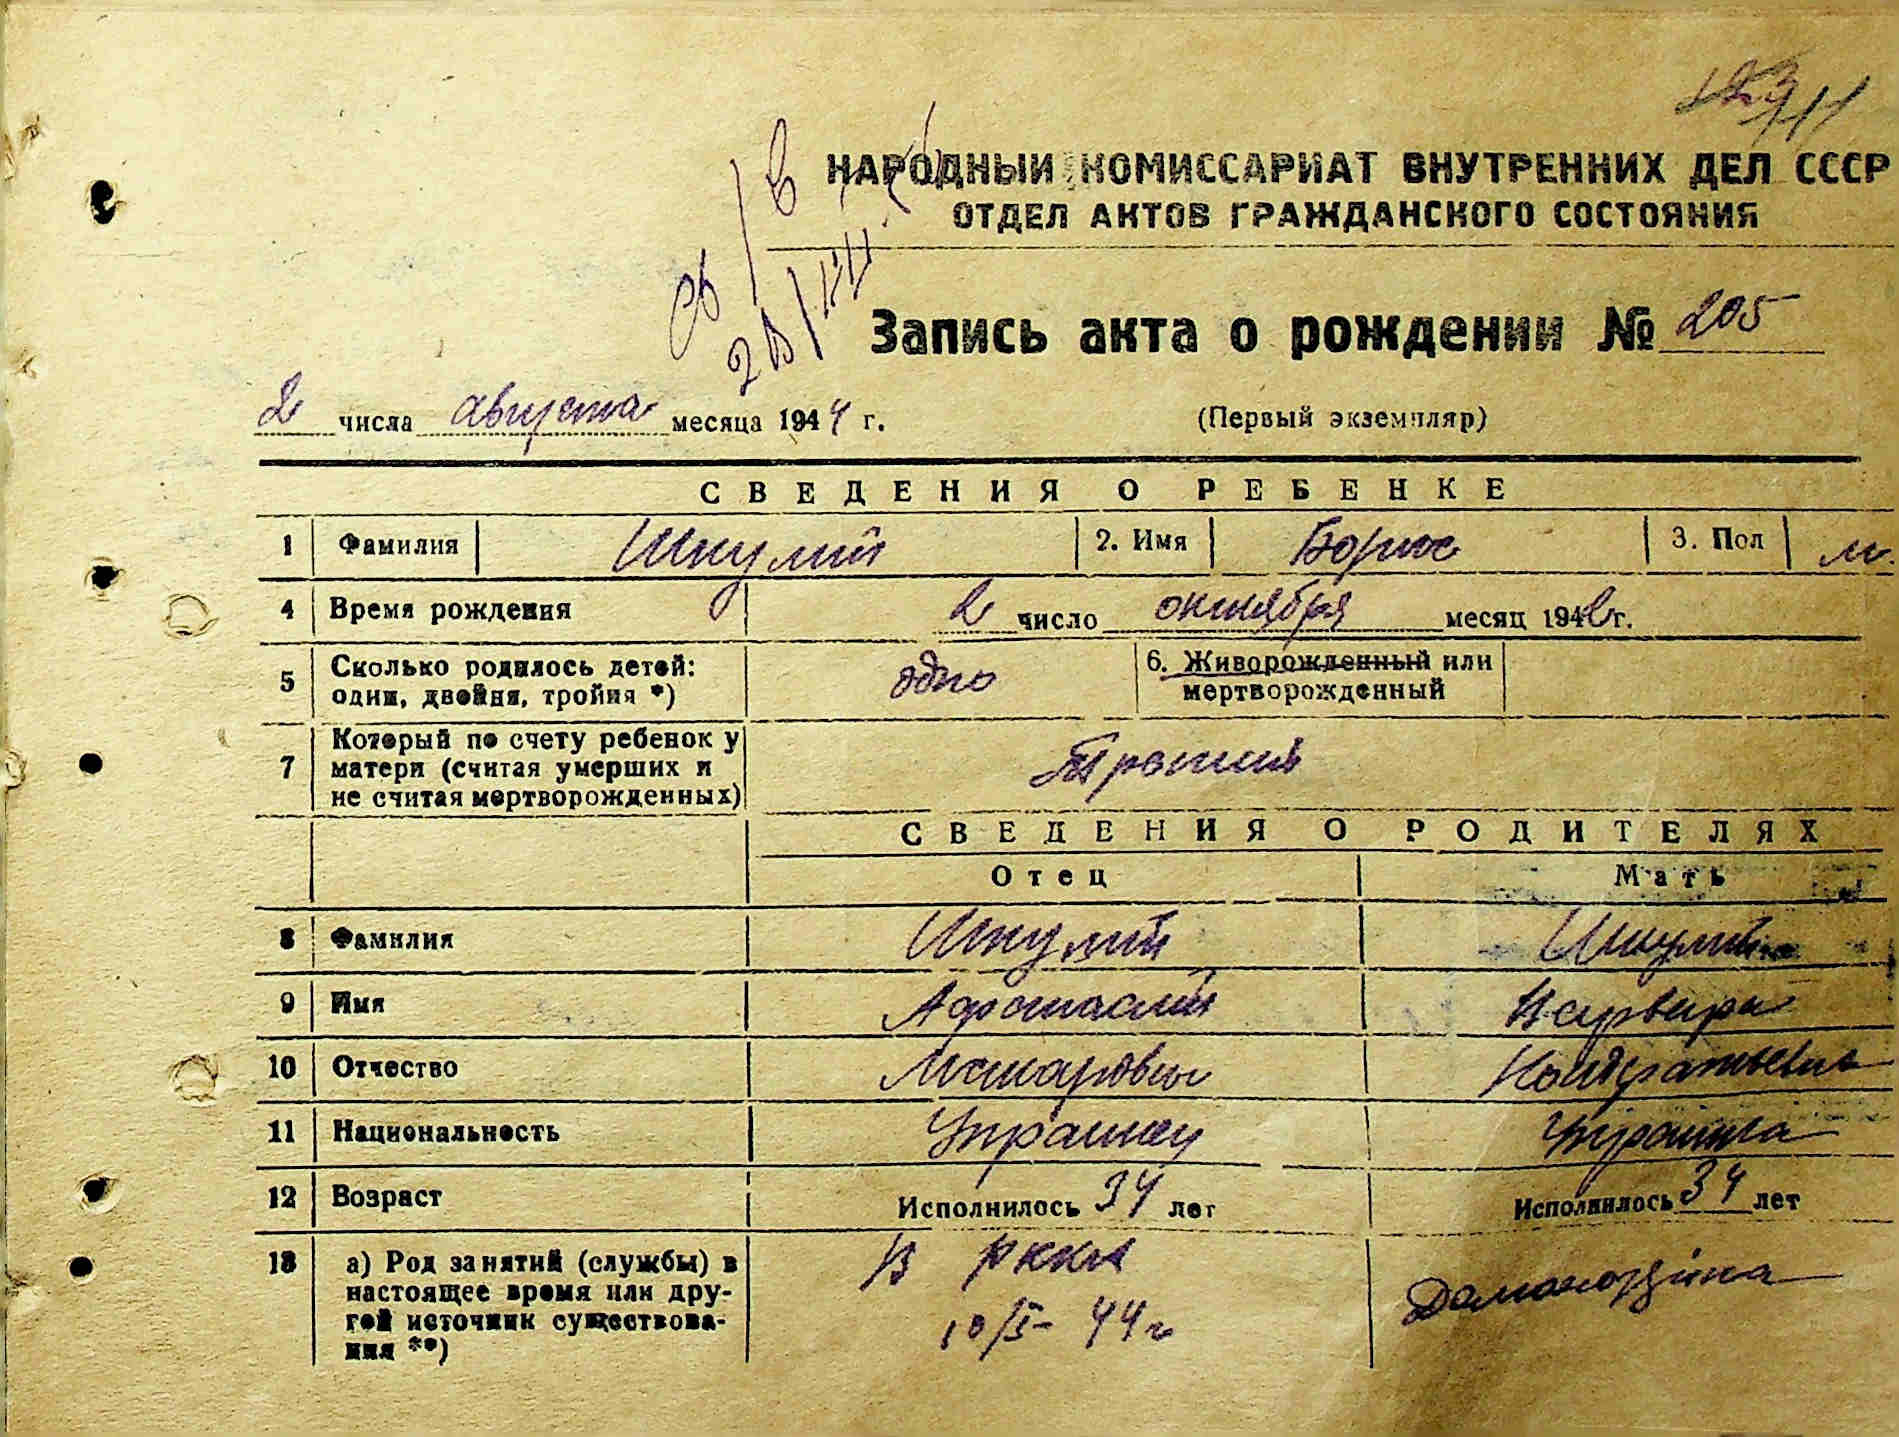 НАРОДНЫЙ КОМИССАРИАТ ВНУТРЕННИХ ДЕЛ СССР
ОТДЕЛ АКТОВ ГРАЖДАНСКОГО СОСТОЯНИЯ
Запись акта о рождении № 205
2 числа августа месяца 1944 г. (Первый экземпляр)
СВЕДЕНИЯ О РЕБЕНКЕ
1 Фамилия Шкулий 2. Имя Борис 3. Пол м.
4 Время рождения 2 число октября месяц 1942 г.
5 Сколько родилось детей: одно 6. Живорожденный или
один, двойня, тройня *) мертворожденный
7 Который по счету ребенок у
матери (считая умерших и
не считая мертворожденных)
СВЕДЕНИЯ О РОДИТЕЛЯХ
Отец Мать
8 Фамилия Шкулий Шкулий
9 Имя Афанасий
10 Отчество Макарович Кондратьевна
11 Национальность Украинец Украинка
12 Возраст Исполнилось 34 лет Исполнилось 34 лет
13 а) Род занятий (службы) в В РККА
настоящее время или дру- Домохозяйка
гой источник существова- 10/I- 44 г
ния **)